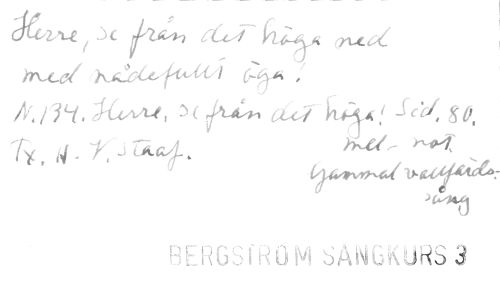 Herre, se från det höga ned
med nådefullt öga!
N. 134. Herre, se från det höga! Sid. 80.
Tx. H. V. Staaf.
mel- not.
Gammal vallfärds-
sång
BERGSTRÖM SÅNGKURS 3